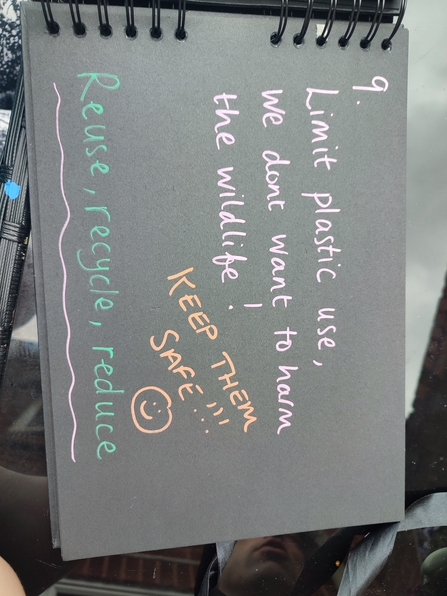 9.
Limit plastic use,
we dont want to harm
the wildlife!
KEEP THEM
SAFE!!!
Reuse, recycle, reduce